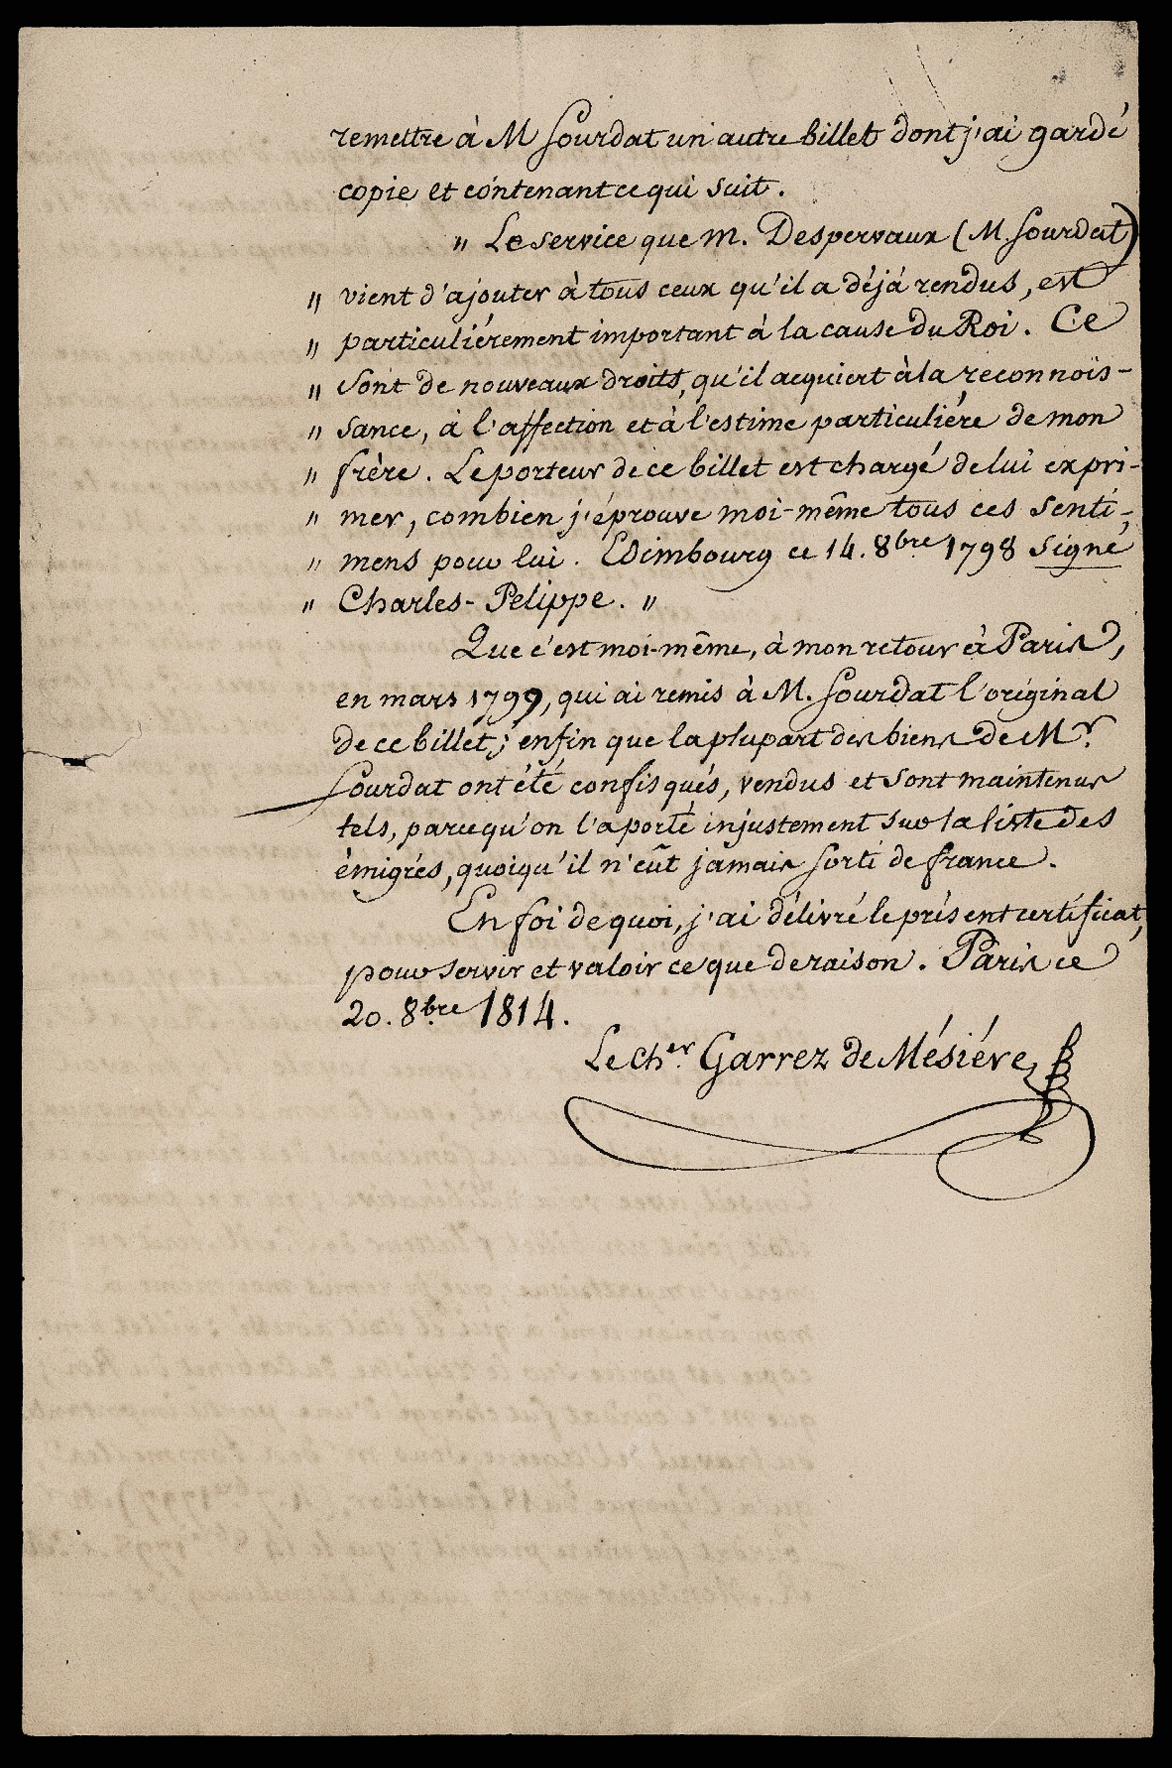 remettre à M Sourdat un autre billet dont j'ai gardé
copie et contenant ce qui suit.
" Le service que m. Despervaux (M. Sourdat)
" vient d'ajouter à tous ceux qu'il a déjà rendus, est
" particuliérement important à la cause du Roi. Ce
" sont de nouveaux droits, qu'il acquiert à la reconnois-
" sance, à l'affection et à l'estime particuliére de mon
" frère. Le porteur de ce billet est chargé de lui expri-
" mer, combien j'éprouve moi-même tous ces senti-
" mens pour lui. Edimbourg ce 14. 8bre 1798 signé
" Charles-Pelippe. "
Que c'est moi-même, à mon retour à Paris,
en mars 1799, qui ai remis à M. Sourdat l'original
de ce billet; enfin que la plupart des biens de Mr.
Sourdat ont été confisqués, vendus et sont maintenus
tels, parcequ'on l'a porté injustement sur la liste des
émigrés, quoiqu'il n'eût jamais sorti de france.
En foi de quoi, j'ai délivré le présent certificat,
pour servir et valoir ce que de raison. Paris ce
20. 8bre 1814.
Le Cher. Garrez de Mésiére